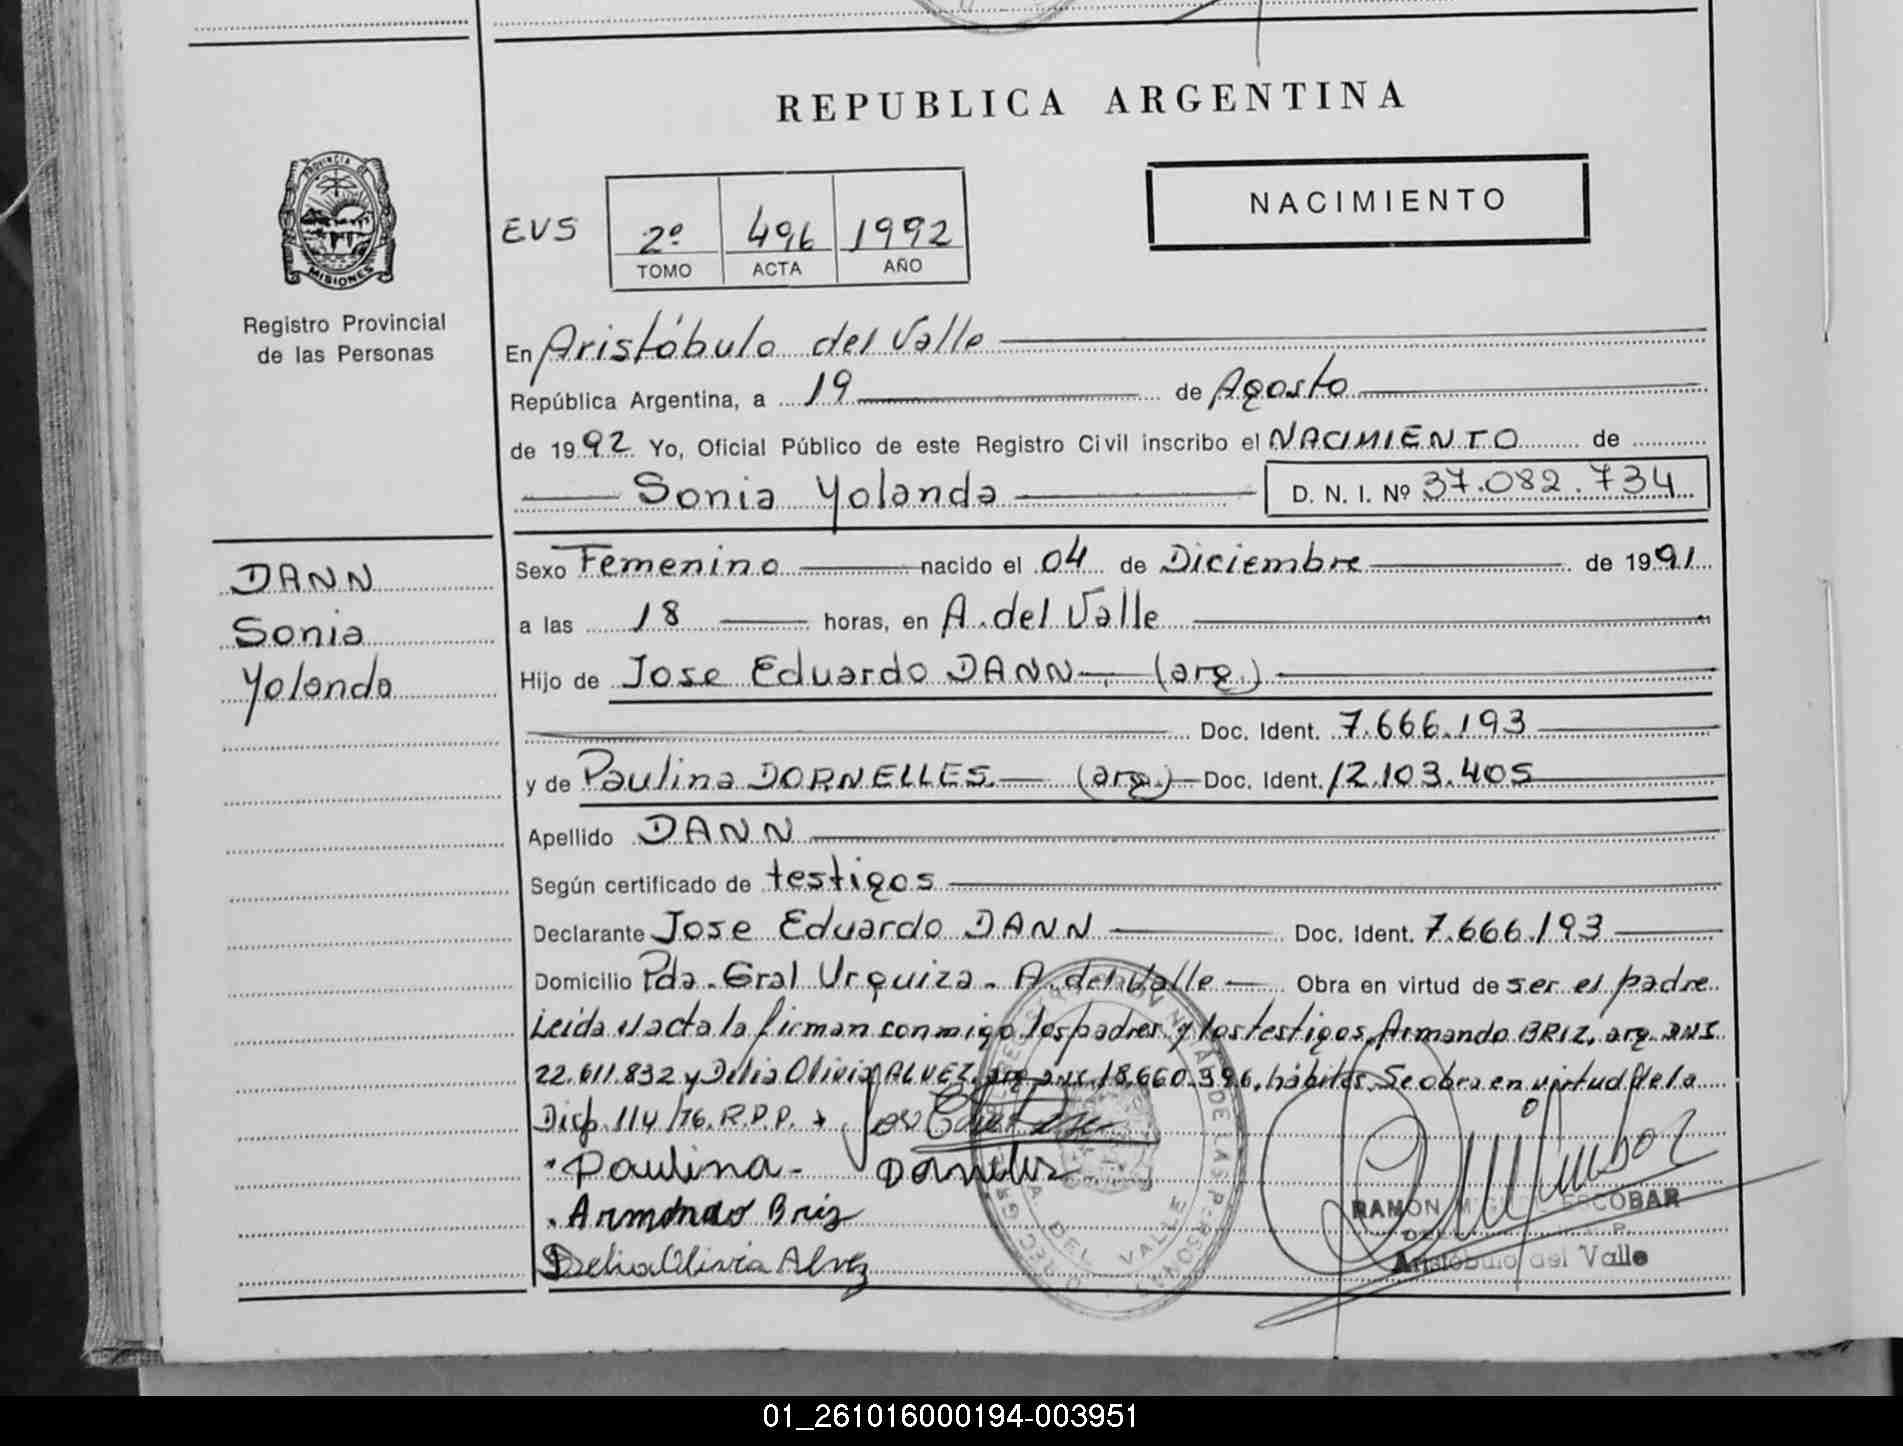 REPUBLICA ARGENTINA
NACIMIENTO
PROVINCIA DE
MISIONES
Registro Provincial
de las Personas
EVS
2º 496 1992
TOMO ACTA AÑO
En Aristóbulo del Valle
República Argentina, a 19 de Agosto
de 1992 Yo, Oficial Público de este Registro Civil inscribo el NACIMIENTO de
Sonia Yolanda D. N. I. Nº 37.082.734
DANN
Sonia
Yolanda
Sexo Femenino nacido el 04 de Diciembre de 1991
a las 18 horas, en A. del Valle
Hijo de Jose Eduardo DANN (arg.)
Doc. Ident. 7.666.193
y de Paulina DORNELLES. (arg.) Doc. Ident. 12.103.405
Apellido DANN
Según certificado de testigos
Declarante Jose Eduardo DANN Doc. Ident. 7.666.193
Domicilio Pda. Gral Urquiza. A. del Valle Obra en virtud de ser el padre
Leida el acta la firman conmigo los padres y los testigos, Armando BRIZ, arg. DNI.
22.611.832 y Delia Olivia ALVEZ, arg. DNI. 18.660.396, hábiles. Se obra en virtud de la
Disp. 114/76. R.P.P.
Paulina - Dornelles
Armando Briz
Delia Olivia Alvez
RAMON ESCOBAR
Aristóbulo del Valle
01_261016000194-003951